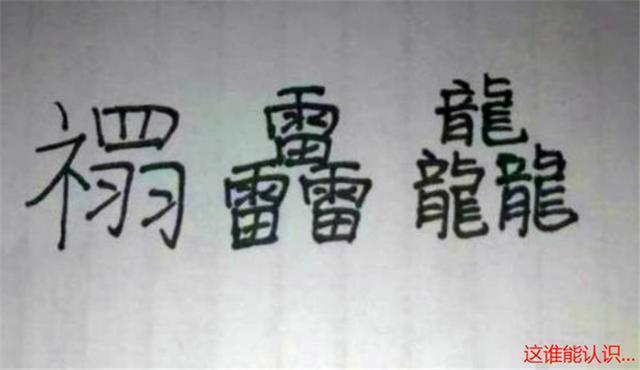 禤靐龘
这谁能认识...